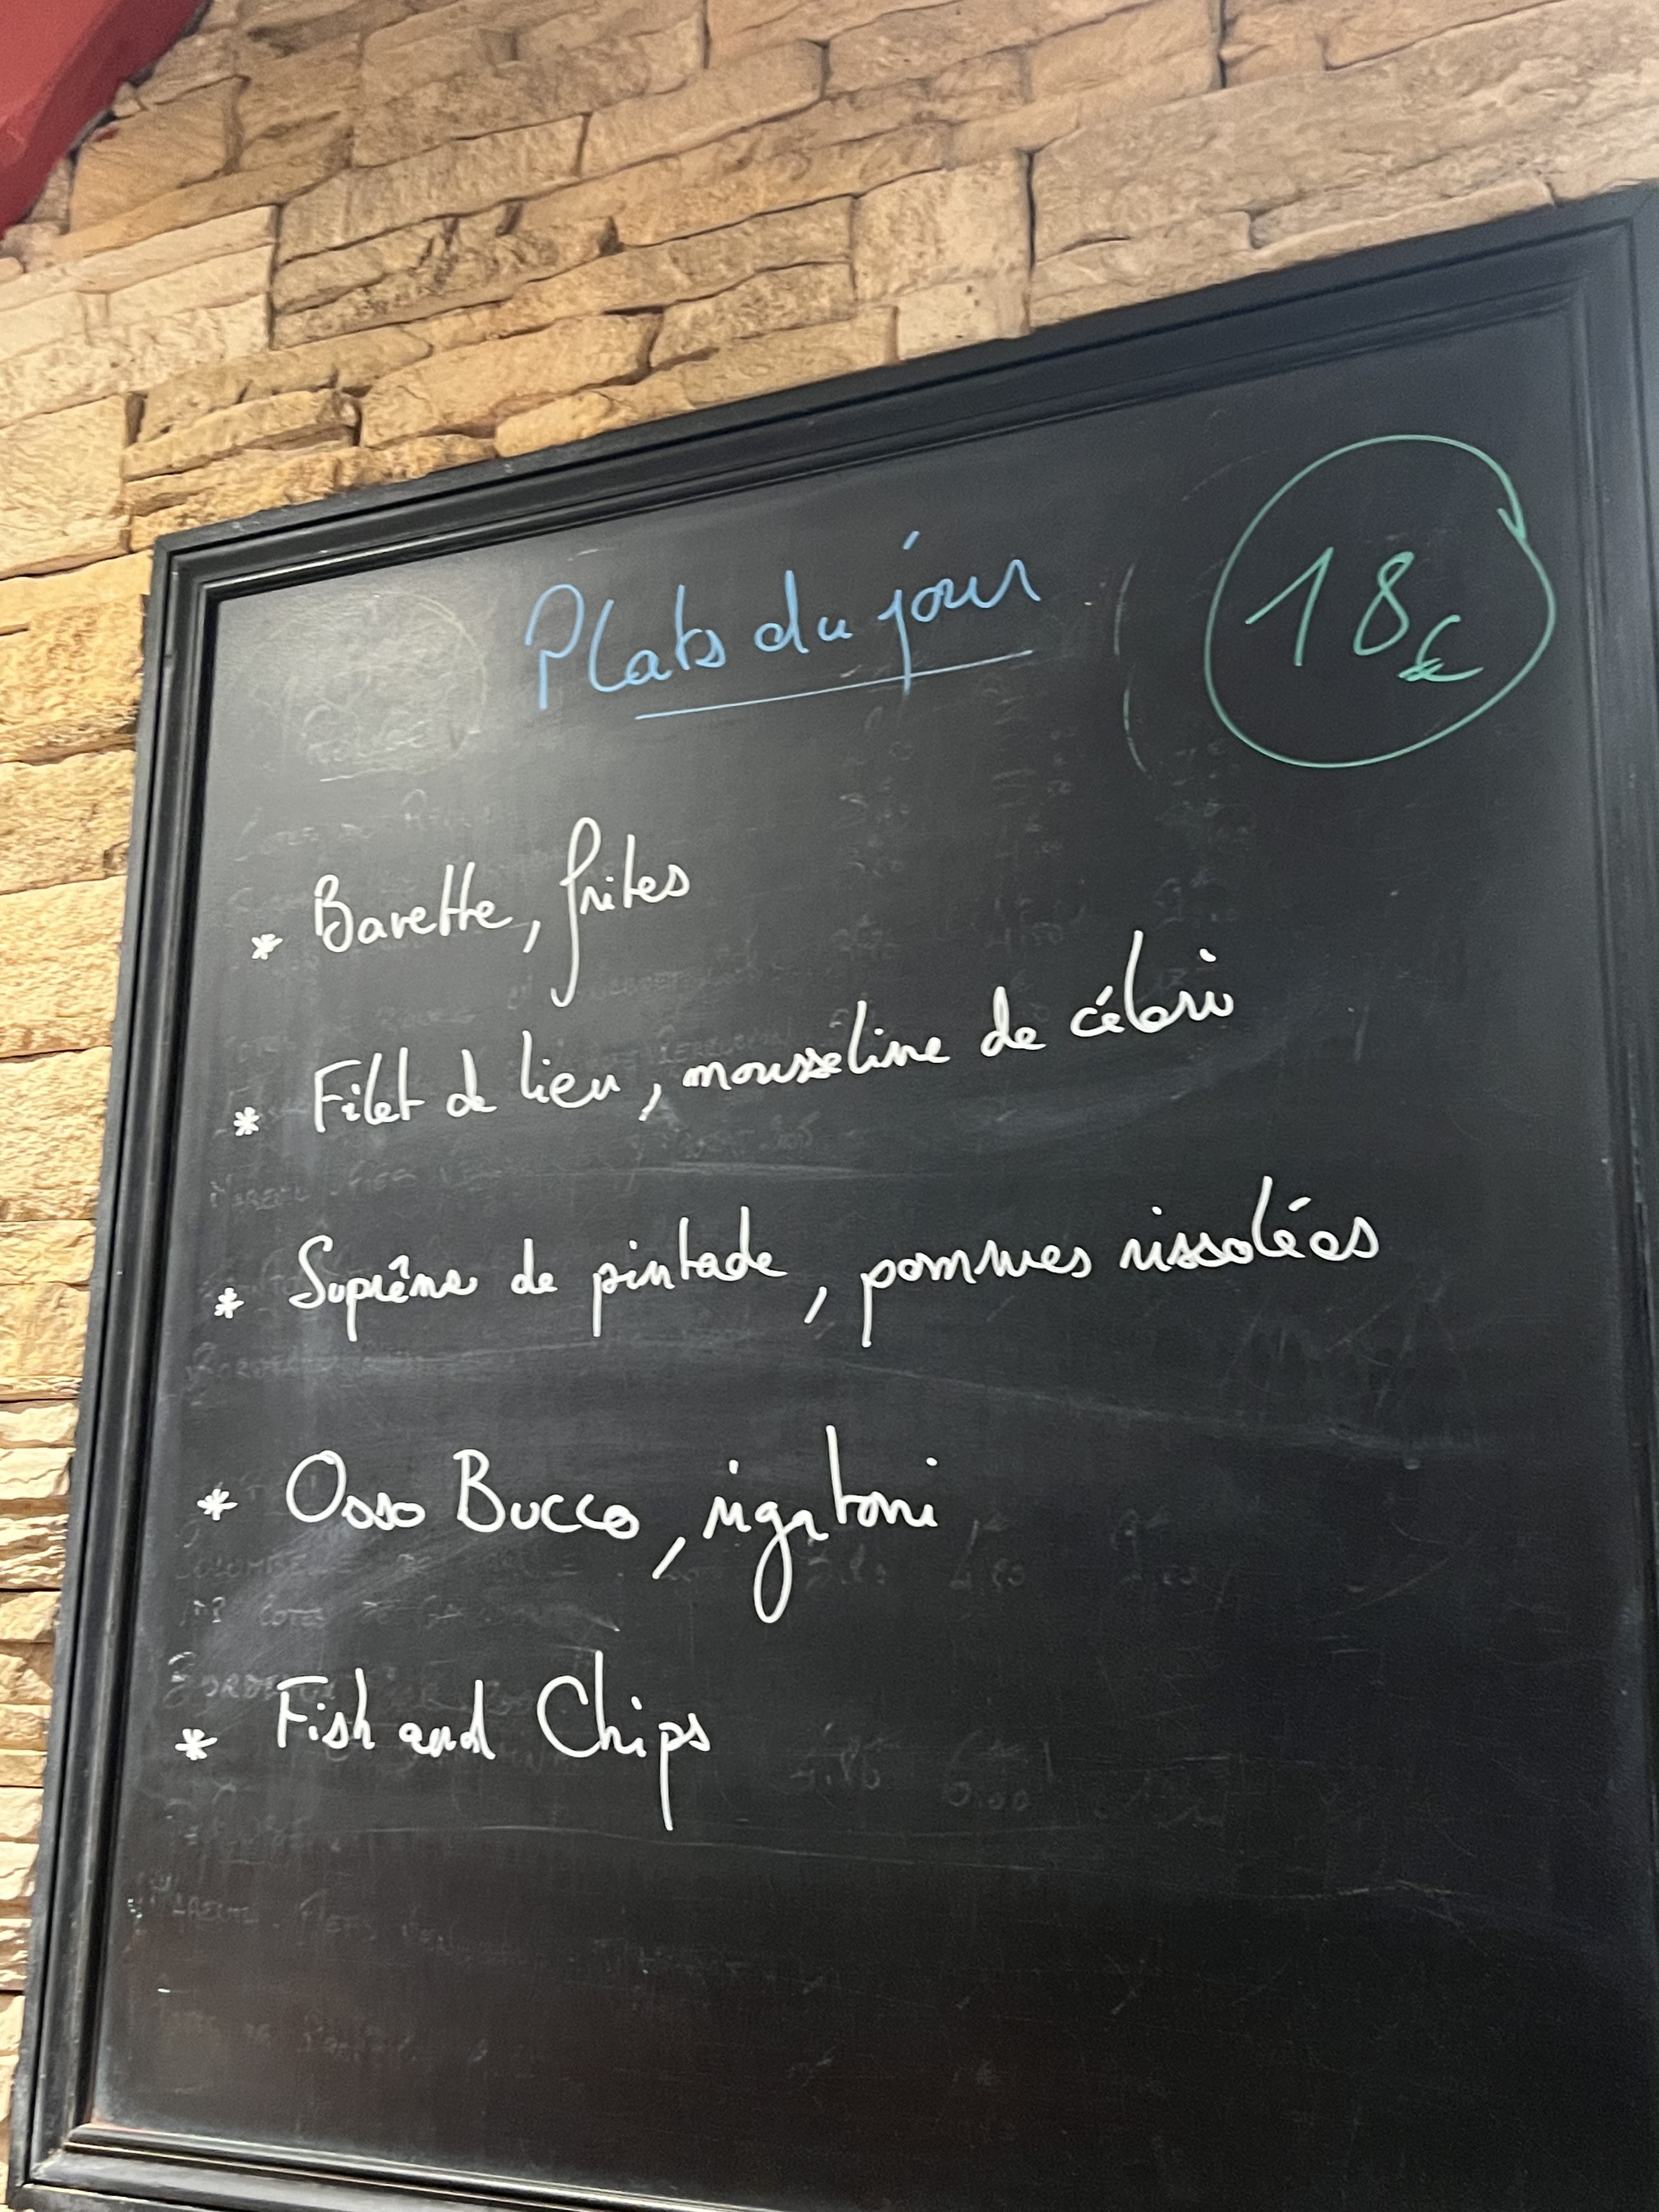 Plats du jour
18€
* Bavette, frites
* Filet de lieu, mousseline de céleri
* Suprême de pintade, pommes rissolées
* Osso Bucco, rigatoni
* Fish and Chips